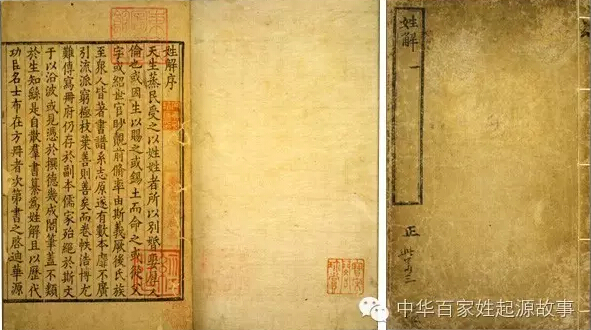 姓解序
天生蒸民受之以姓姓者所以別婚要厚人
倫也或因生以賜之或錫土而命之或從父
字或紹世官眇覿前脩率由斯義厥後氏族
至衆人皆著書譜系志原遂有數本靡不廣
引流派窮極枝葉善則善矣而卷帙浩博尤
難傳寫冊府仍存於副本儒家殆絕於斯文
于以沿波或見憑於撰德幾成閣筆蓋不類
於生知繇是自散羣書纂為姓解且以歷代
功臣名士布在方冊者次第書之啓迪華源
姓解 一
正
中华百家姓起源故事